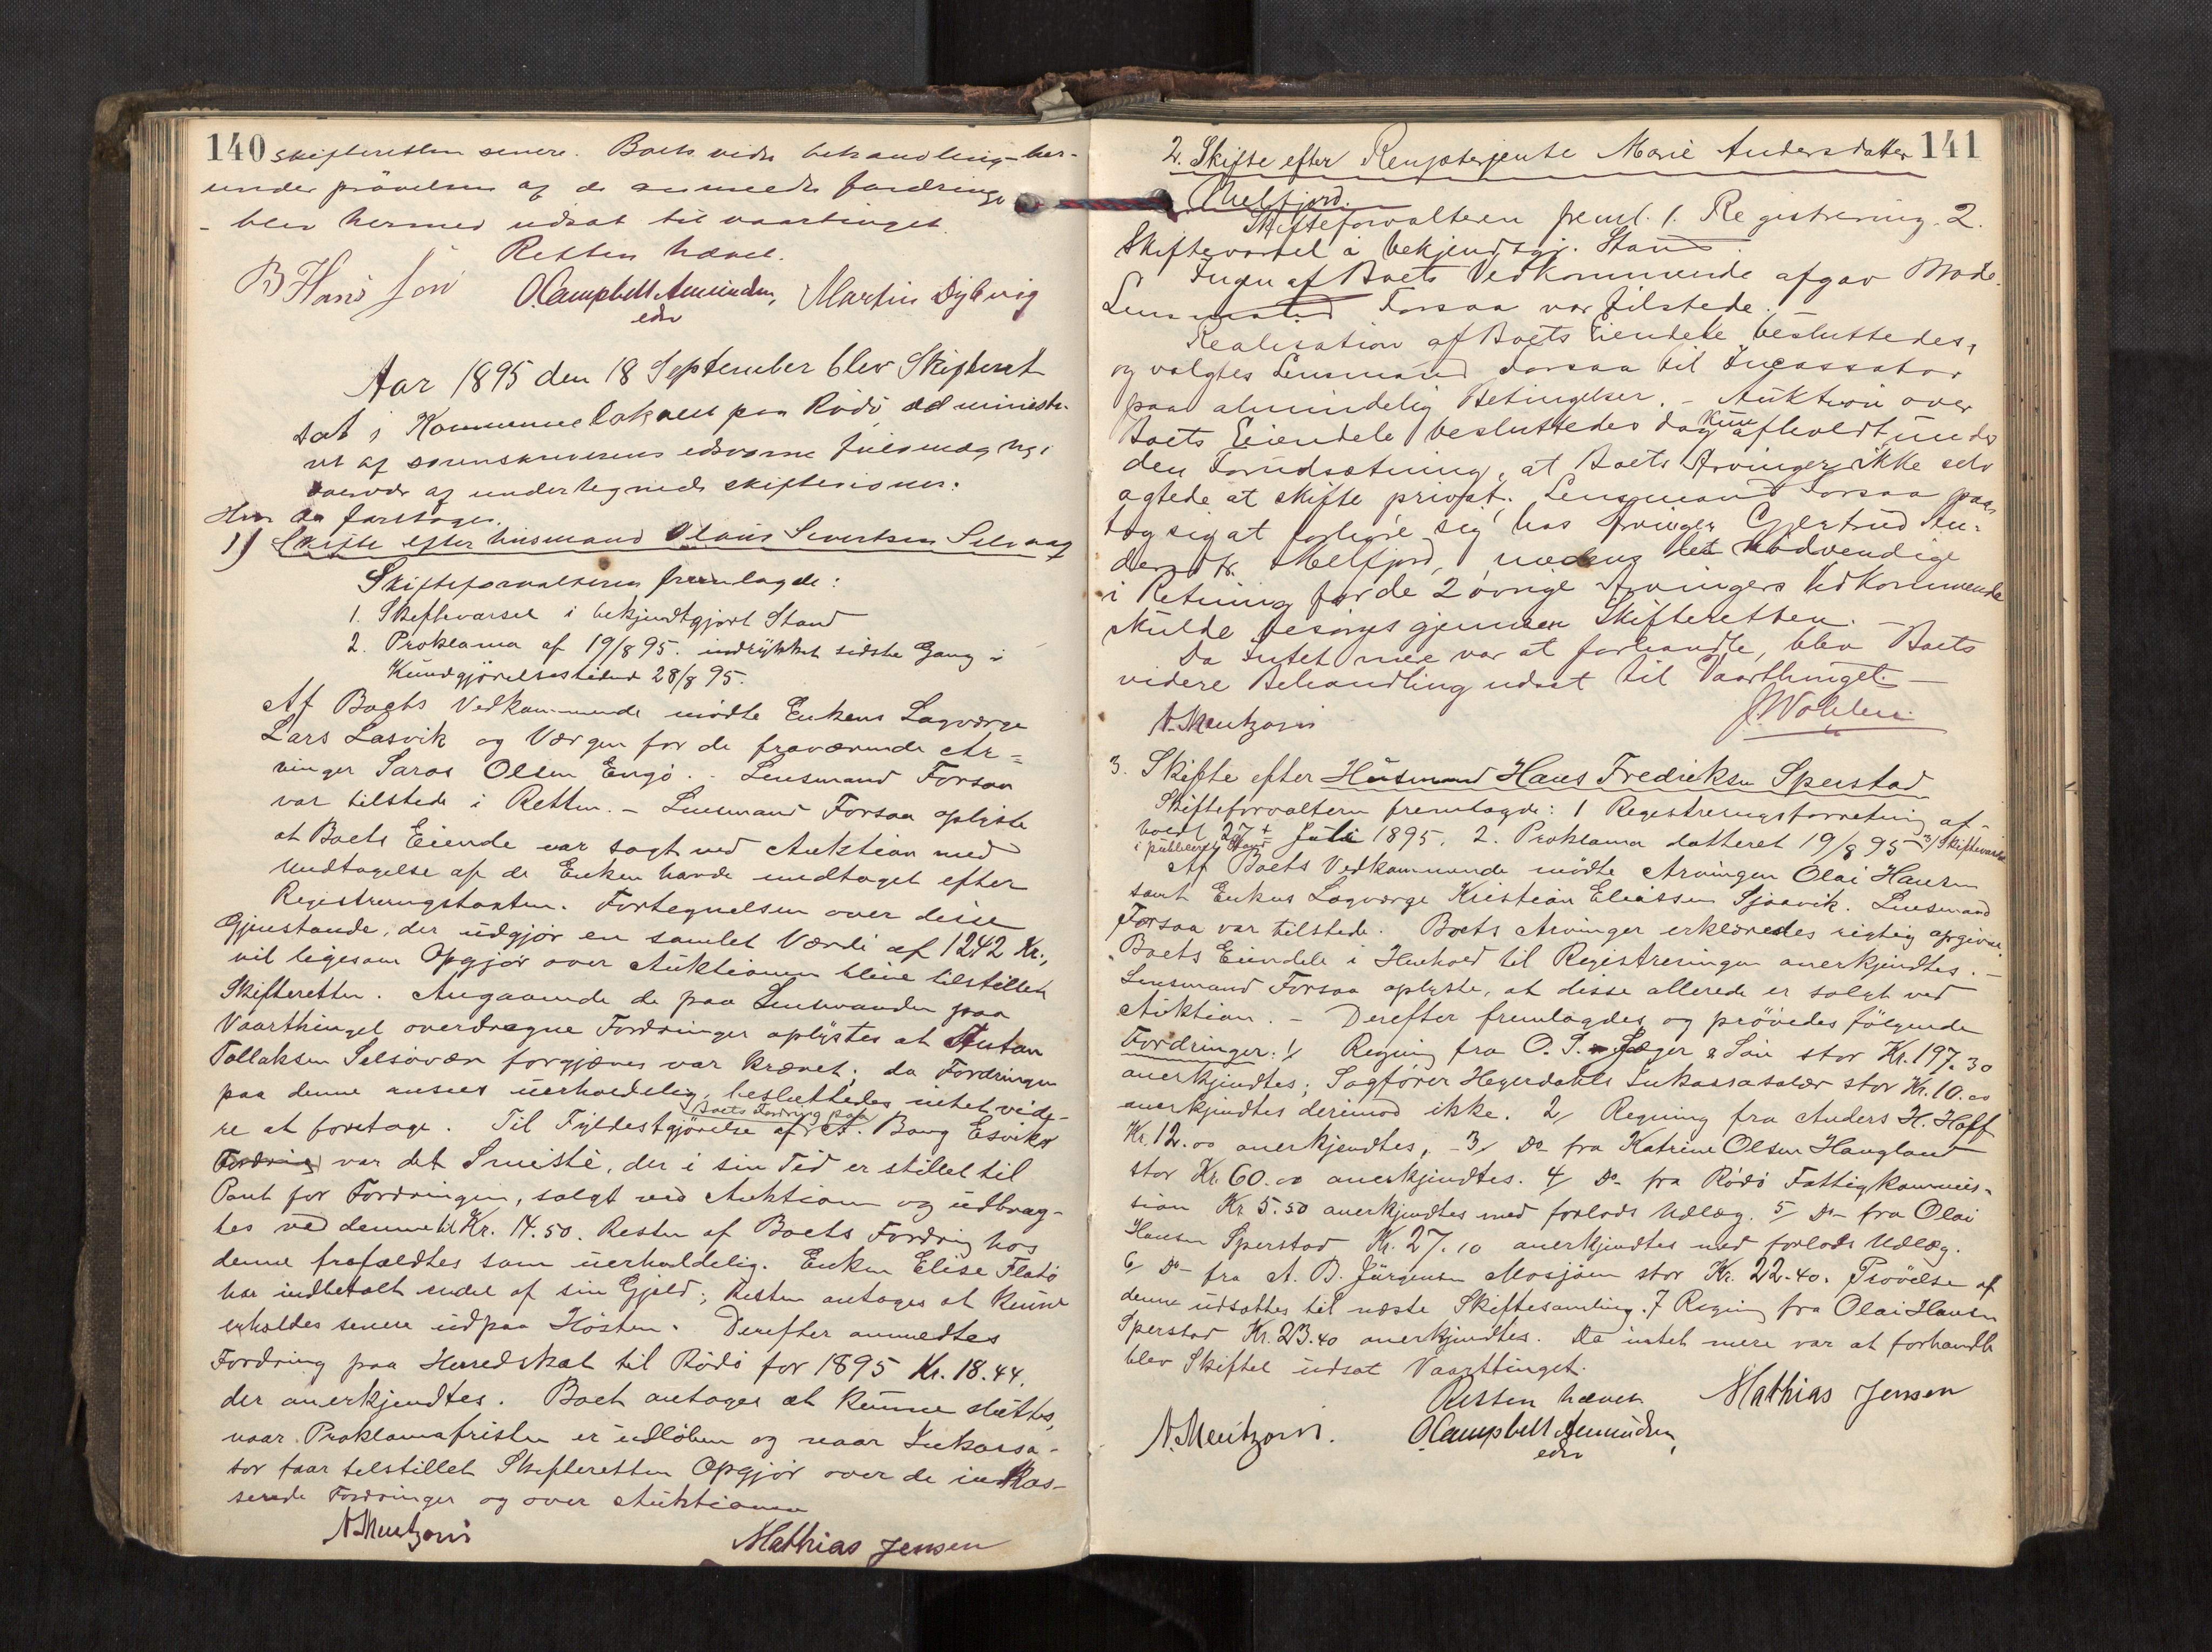 140
skifteretten senere. Boets videre behandling - her-
under prøvelsen af de anmeldte fordringer
- blev hermed udsat til vaartinget.
Retten hævet.
OCampbell Amundsen, Martin Dybvig
edsv
Aar 1895 den 18 September blev Skifteret
sat i Kommunelokalet paa Rødø administre-
ret af sorenskriverens edsvorne fuldmægtig i
overvær af undertegnede skiftevidner.
Hvor da foretoges.
1) Skifte efter husmand Olaus Sivertsen Selvaag
Skifteforvalteren fremlagde:
1. Skiftevarsel i bekjendtgjort Stand
2. Proklama af 19/8 95. indrykket sidste Gang i
Kundgjørelsestidende 28/8 95.
Af Boets Vedkommende mødte Enkens Lagværge
Lars Lasvik og Værgen for de fraværende Ar-
vinger Saras Olsen Engø. - Lensmand Forsaa
var tilstede i Retten. - Lensmand Forsaa oplyste
at Boets Eiende var solgt ved Auktion med
Undtagelse af de Enken havde undtaget efter
Registreringstaxten. Fortegnelsen over disse
Gjenstande, der udgjør en samlet Værdi af 1242 Kr.,
vil ligesom Opgjør over Auktionen blive tilstillet
Skifteretten. Angaaende de paa Lensmanden paa
Vaarthinget overdragne Fordringer oplystes at Austan
Tollaksen Selsøvær forgjæves var krævet; da Fordringen
paa denne ansees uerholdelig, besluttedes intet vide-
re at foretage. Til Fyldestgjørelse af Boets Fordring paa A. Bang Esvik
Fordring var det Smiste, der i sin Tid er stillet til
Pant for Fordringen, solgt ved Auktion og udbrag-
tes ved denne til Kr. 14.50. Resten af Boets Fordring hos
denne frafaldtes som uerholdelig. Enken Elise Flatø
har indbetalt endel af sin Gjæld; Resten antages at kunne
erholdes senere udpaa Høsten. Derefter anmeldtes
Fordring paa Herredskat til Rødø for 1895 Kr. 18.44.
der anerkjendtes. Boet antages at kunne sluttes,
naar Proklamafristen er udløben og naar Inkassa-
tor faar tilstillet Skifteretten Opgjør over de indkas-
serede Fordringer og over Auktionen
N. Mentzoni
Mathias Jensen
141
2. Skifte efter Rengsterjente Marie Andersdatter
Melfjord.
Skifteforvalteren freml. 1. Registrering. 2.
Skiftevarsel i bekjendtgj. Stand.
Ingen af Boets Vedkommende afgav Møde.
Lensmand Forsaa var tilstede.
Realisation af Boets Eiendele besluttedes,
og valgtes Lensmand Forsaa til Incassator
paa almindelig Betingelser. - Auktion over
Boets Eiendele besluttedes dog kun afholdt under
den Forudsætning, at Boets Arvinger ikke selv
agtede at skifte privat. Lensmand Forsaa paa-
tog sig at forhøre sig hos Arvingen Gjertrud An-
dersdtr. Melfjord, medens det Nødvendige
i Retning for de 2 øvrige Arvingers Vedkommende
skulde besørges gjennem Skifteretten. -
Da Intet mere var at forhandle, blev Boets
videre Behandling udsat til Vaarthinget. -
N. Mentzoni
3. Skifte efter Husmand Hans Fredriksen Sperstad
Skifteforvalteren fremlagde: 1 Registreringsforretning af-
holdt 27de Juli 1895. 2. Proklama datteret 19/8 95 - 3/ Skiftevarsel
i publiceret Stand
Af Boets Vedkommende mødte Arvingen Olai Hansen
samt Enkens Lagværge Kristian Eliassen Sjaavik. Lensmand
Forsaa var tilstede. Boets Arvinger erklæredes rigtig opgivne.
Boets Eiendele i Henhold til Registreringen anerkjendtes. -
Lensmand Forsaa oplyste, at disse allerede er solgt ved
Auktion. - Derefter fremlagdes og prøvedes følgende
Fordringer: 1/ Regning fra O. S. Jæger & Søn stor Kr. 197.30
anerkjendtes; Sagfører Heyerdahls Inkassasalær stor Kr. 10.00
anerkjendtes derimod ikke. 2/ Regning fra Anders H. Hoff
Kr. 12.00 anerkjendtes, - 3/ Do fra Katrine Olsen Haugland
stor Kr. 60.00 anerkjendtes. 4/ Do fra Rødø Fattigkommis-
sion Kr 5.50 anerkjendtes med forlods Udlæg. 5/ Do - fra Olai
Hansen Sperstad Kr. 27.10 anerkjendtes med forlods Udlæg.
6/ Do - fra A. B. Jürgensen Mosjøen stor Kr. 22.40. Prøvelse af
denne udsattes til næste Skiftesamling. 7 Regning fra Olai Hansen
Sperstad Kr. 23.40 anerkjendtes. Da intet mere var at forhandle
blev Skiftet udsat Vaarttinget.
Retten hævet Mathias Jensen
N. Mentzoni. OCampbell Amundsen,
edsv